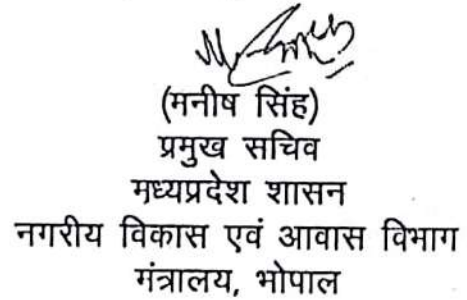 (मनीष सिंह)
प्रमुख सचिव
मध्यप्रदेश शासन
नगरीय विकास एवं आवास विभाग
मंत्रालय, भोपाल